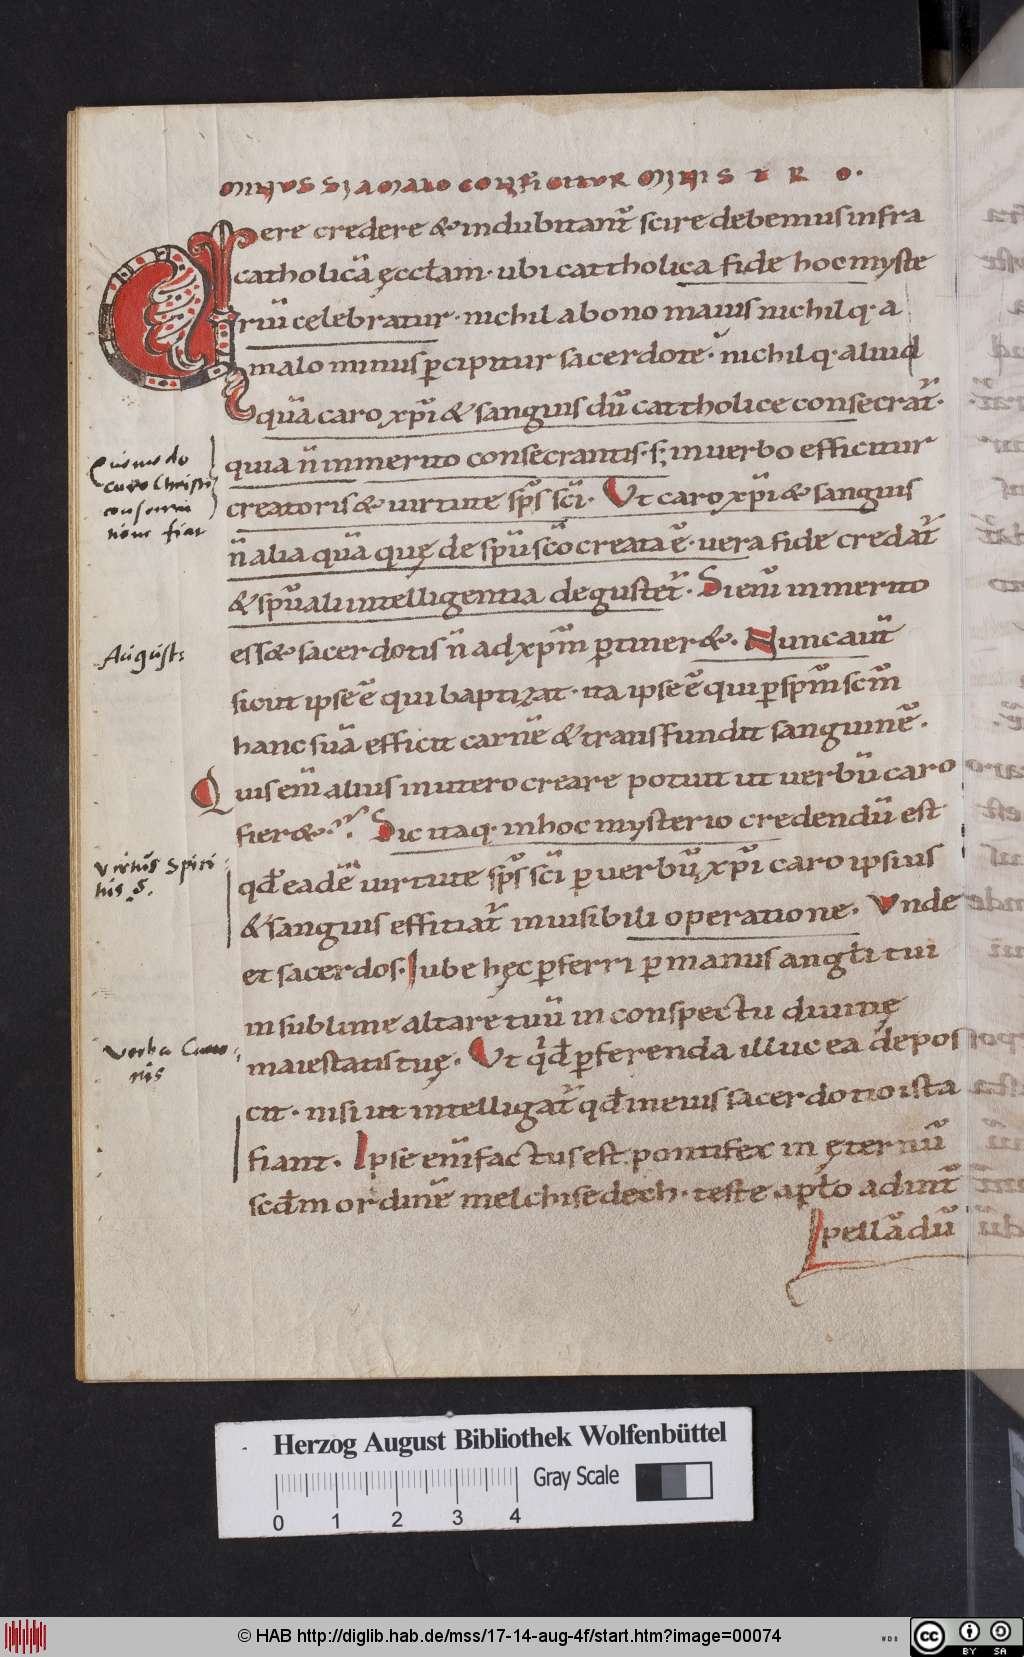 MINUS SI A MALO CONFICITUR MINISTRO.
Vere credere & indubitant̄ scire debemus infra
catholicā ęcct̄am· ubi cattholica fide hoc myste
riū celebratur· nichil a bono maius nichilq· a
malo minus p̄cipitur sacerdote· nichilq· aliud
quā caro xp̄i & sanguis dū cattholice consecrat̄·
quia n̄ in merito consecrantis· s; in uerbo efficitur
creatoris & uirtute sp̄s sc̄i· Ut caro xp̄i & sanguis
n̄ alia quā quę de sp̄u sc̄o creata ē· uera fide credat̄
& sp̄uali intelligentia degustet̄· Si eni̅ in merito
ess& sacerdotis n̄ ad xp̄m̄ p̄tiner&· Nunc aut̄
sicut ipse ē qui baptizat· ita ipse ē qui p̄ sp̄m̄ sc̄m̄
hanc suā efficit carnē & transfundit sanguinē·
Quis eni̅ alius in utero creare potuit ut uerbū caro
fier&· Sic itaq· in hoc mysterio credendū est
qd̄ eadē uirtute sp̄s sc̄i p̄ uerbū xp̄i caro ipsius
& sanguis effitiat̄ inuisibili operatione· Unde
et sacerdos· Iube hęc p̄ferri p̄ manus angt̄i tui
in sublime altare tuū in conspectu diuinę
maiestatis tuę· Ut qd̄ p̄ferenda illuc ea depos
cit· nisi ut intelligat̄ qd̄ in eius sacerdotio ista
fiant· Ipse eni̅ factus est pontifex in ęternū
scd̄m ordinē melchisedech· teste apt̄o ad
pellādū
Quomodo
caro Christi
consecra
tione fiat
August:
Virtus Spiri
tus s.
Verba Cano
nis
Herzog August Bibliothek Wolfenbüttel
Gray Scale
0 1 2 3 4
© HAB http://diglib.hab.de/mss/17-14-aug-4f/start.htm?image=00074
WDB
cc BY SA